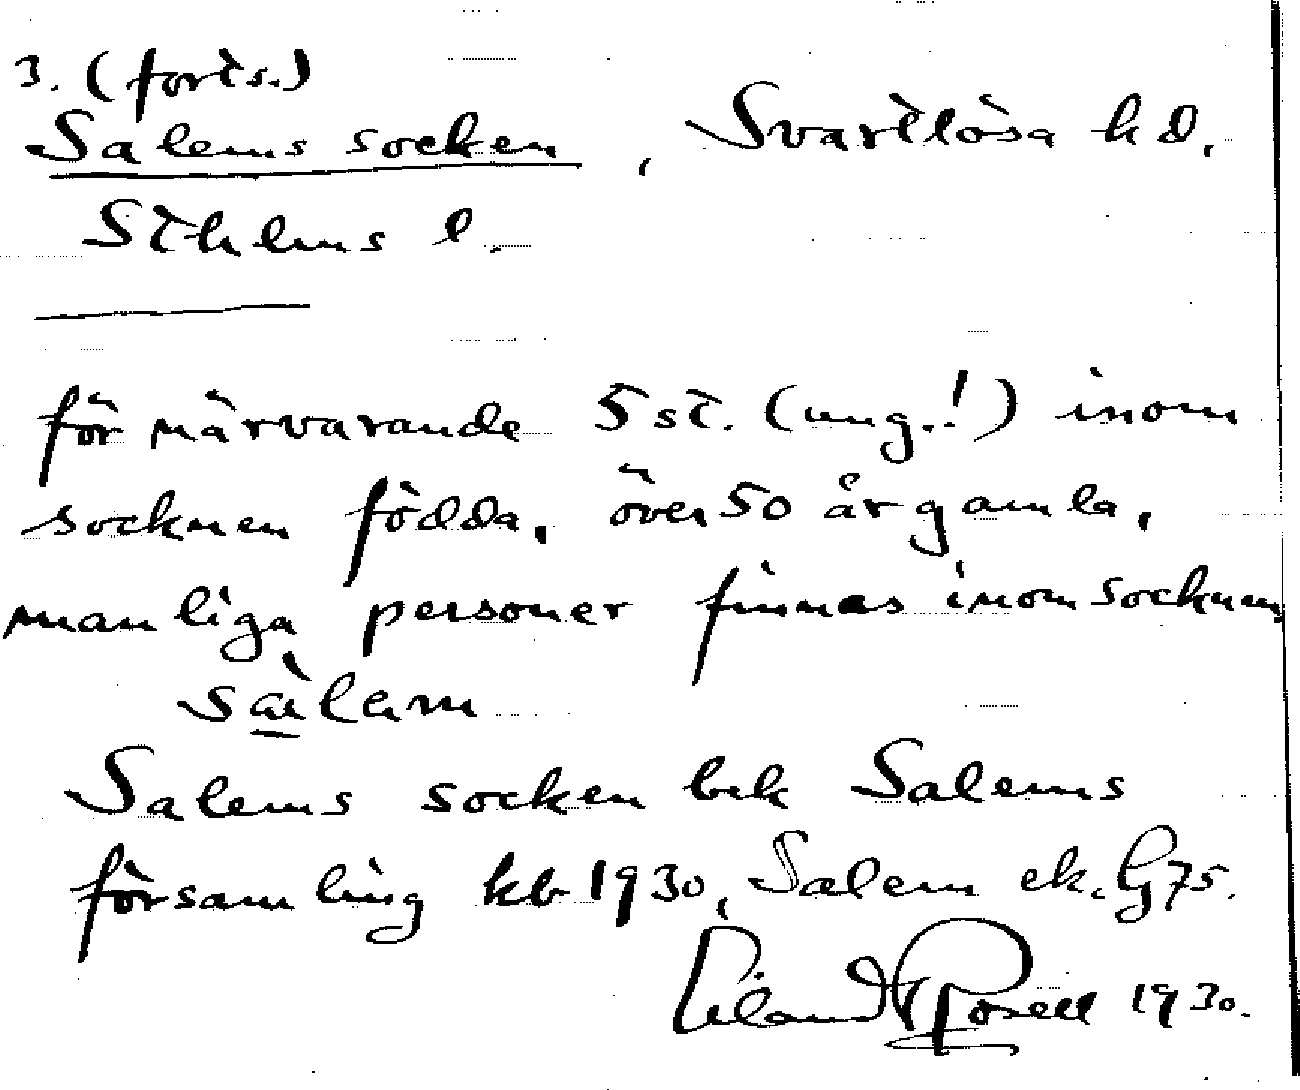 3. (forts.)
Salems socken, Svartlösa hd.
Sthlms l.
för närvarande 5 st. (ung.!) inom
socknen födda, över 50 år gamla,
manliga personer finnas inom socknen
sàlem
Salems socken bek Salems
församling kb 1930, Salem ek. G 75.
Rosell 1930.